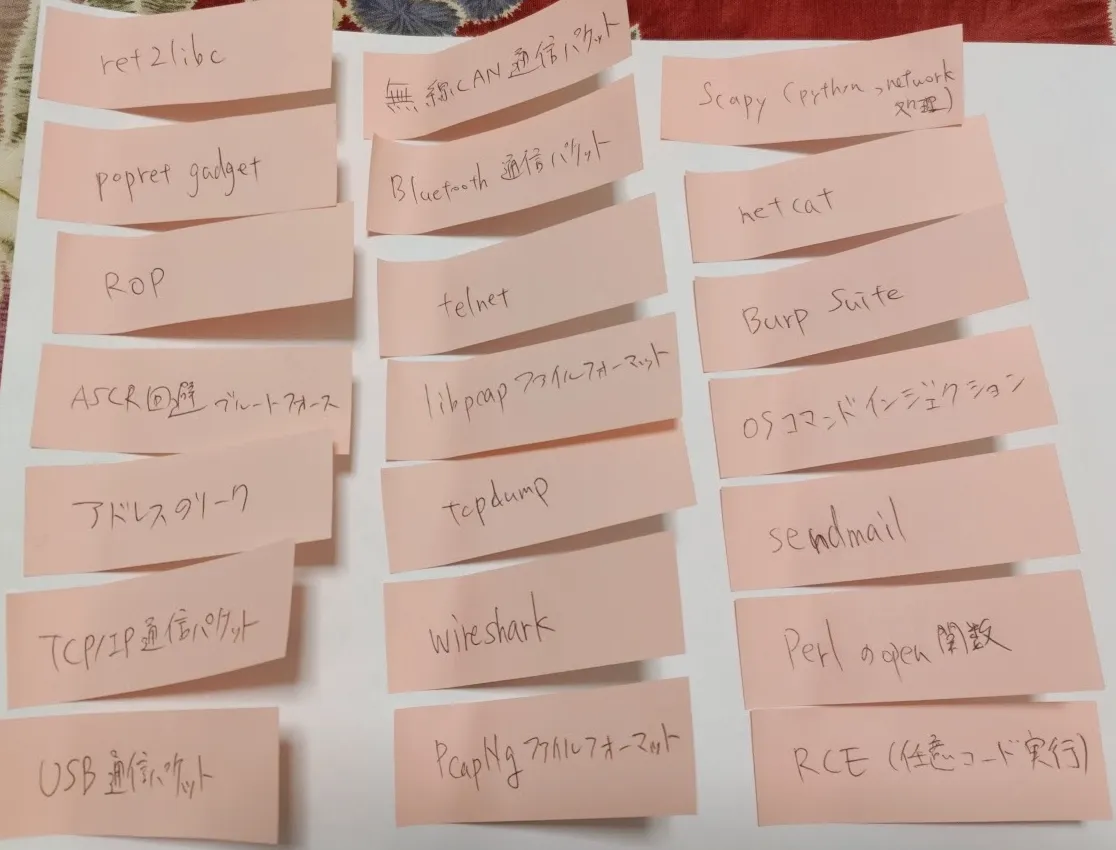 ret2libc
popret gadget
ROP
ASCR回避 ブルートフォース
アドレスのリーク
TCP/IP通信パケット
USB通信パケット
無線CAN通信パケット
Bluetooth 通信パケット
telnet
libpcapファイルフォーマット
tcpdump
wireshark
PcapNgファイルフォーマット
Scapy (python,network
処理)
netcat
Burp Suite
OSコマンドインジェクション
sendmail
Perl のopen関数
RCE (任意コード実行)